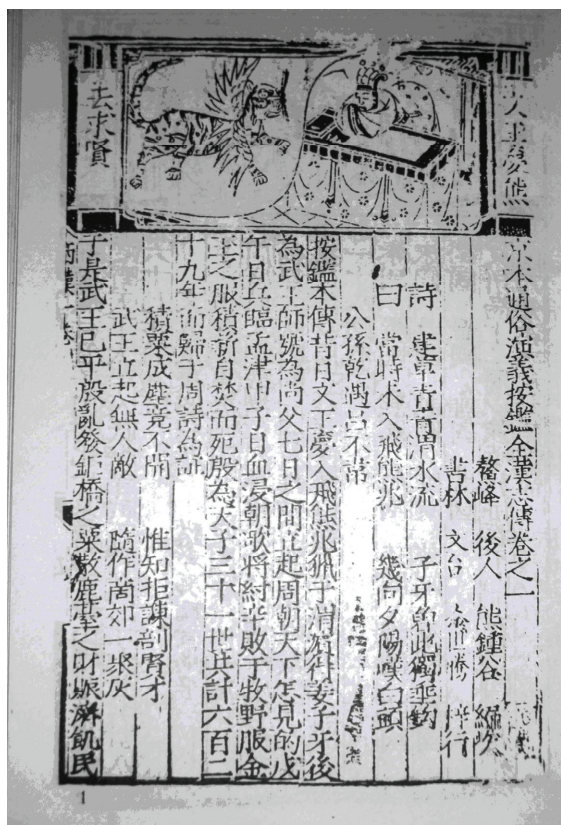 文王夢熊
去求賢
京本通俗演義按鑑全漢志傳卷之一
鰲峰 後人 熊鍾谷 編次
書林 文台 余 梓行
詩 草青青渭水流 子牙曾此獨垂鈎
曰 當時未入飛熊兆 幾向夕陽嘆白頭
公孫乾遇呂不韋
按鑑本傳昔日文王夢入飛熊兆獵于渭濱得姜子牙後
為武王師號為尚父七日之間立起周朝天下怎見的戊
午日兵臨孟津甲子日血浸朝歌將紂辛敗于牧野服金
玉之服積薪自焚而死殷為天子三十一世共計六百二
十九年而歸于周詩為証
積粟成塵竟不開 惟知拒諫剖賢才
武王立起無人敵 隨作商郊一聚灰
于是武王已平殷亂發鉅橋之粟散鹿臺之財賑濟飢民
1